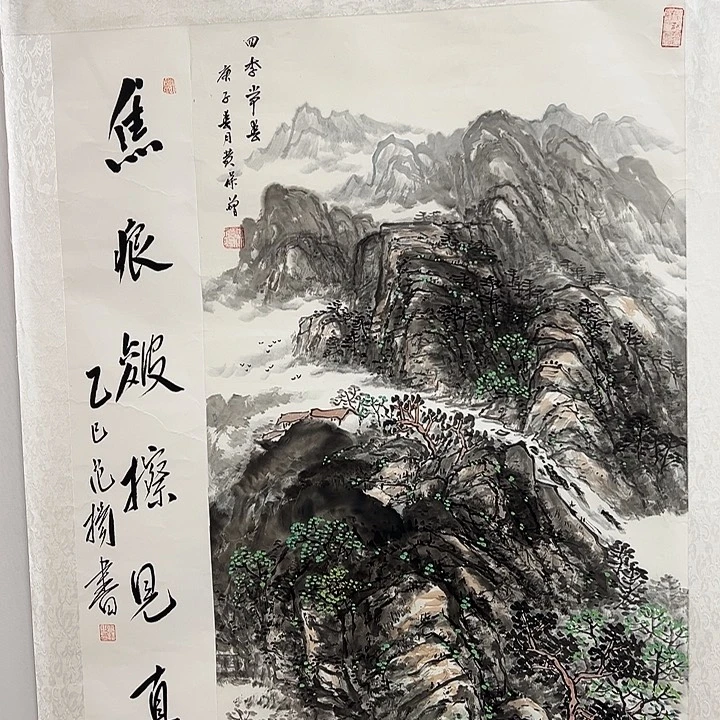 四季常春
庚子春日黄保
焦痕皴擦見真
乙巳
書